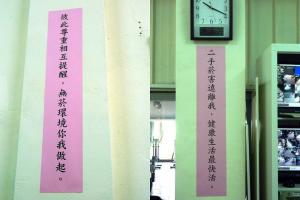 彼此尊重相互提醒，無菸環境你我做起。
二手菸害遠離我，健康生活最快活。